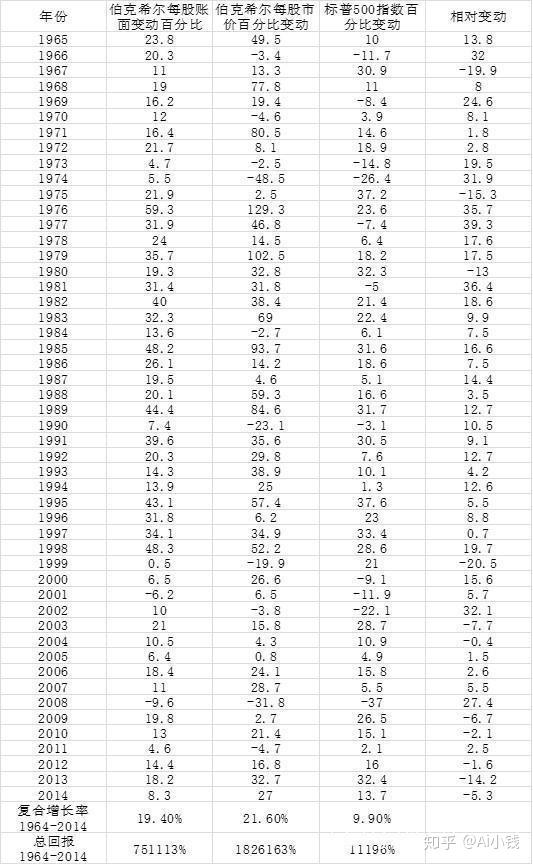 年份 伯克希尔每股账面变动百分比 伯克希尔每股市价百分比变动 标普500指数百分比变动 相对变动
1965 23.8 49.5 10 13.8
1966 20.3 -3.4 -11.7 32
1967 11 13.3 30.9 -19.9
1968 19 77.8 11 8
1969 16.2 19.4 -8.4 24.6
1970 12 -4.6 3.9 8.1
1971 16.4 80.5 14.6 1.8
1972 21.7 8.1 18.9 2.8
1973 4.7 -2.5 -14.8 19.5
1974 5.5 -48.5 -26.4 31.9
1975 21.9 2.5 37.2 -15.3
1976 59.3 129.3 23.6 35.7
1977 31.9 46.8 -7.4 39.3
1978 24 14.5 6.4 17.6
1979 35.7 102.5 18.2 17.5
1980 19.3 32.8 32.3 -13
1981 31.4 31.8 -5 36.4
1982 40 38.4 21.4 18.6
1983 32.3 69 22.4 9.9
1984 13.6 -2.7 6.1 7.5
1985 48.2 93.7 31.6 16.6
1986 26.1 14.2 18.6 7.5
1987 19.5 4.6 5.1 14.4
1988 20.1 59.3 16.6 3.5
1989 44.4 84.6 31.7 12.7
1990 7.4 -23.1 -3.1 10.5
1991 39.6 35.6 30.5 9.1
1992 20.3 29.8 7.6 12.7
1993 14.3 38.9 10.1 4.2
1994 13.9 25 1.3 12.6
1995 43.1 57.4 37.6 5.5
1996 31.8 6.2 23 8.8
1997 34.1 34.9 33.4 0.7
1998 48.3 52.2 28.6 19.7
1999 0.5 -19.9 21 -20.5
2000 6.5 26.6 -9.1 15.6
2001 -6.2 6.5 -11.9 5.7
2002 10 -3.8 -22.1 32.1
2003 21 15.8 28.7 -7.7
2004 10.5 4.3 10.9 -0.4
2005 6.4 0.8 4.9 1.5
2006 18.4 24.1 15.8 2.6
2007 11 28.7 5.5 5.5
2008 -9.6 -31.8 -37 27.4
2009 19.8 2.7 26.5 -6.7
2010 13 21.4 15.1 -2.1
2011 4.6 -4.7 2.1 2.5
2012 14.4 16.8 16 -1.6
2013 18.2 32.7 32.4 -14.2
2014 8.3 27 13.7 -5.3
复合增长率 1964-2014 19.40% 21.60% 9.90%
总回报 1964-2014 751113% 1826163% 11196%
知乎 @Ai小钱